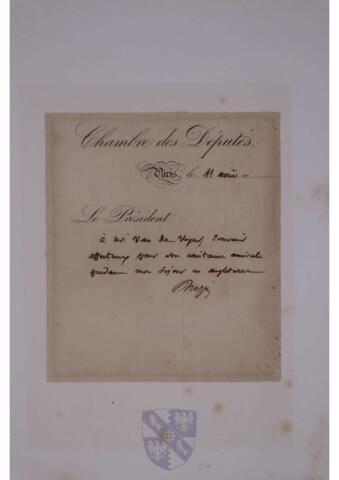 Chambre des Députés.
Paris, le 11 août
Le Président
à Mr Van de Weyer Souvenir
affectueux pour son assistance amicale
pendant mon séjour en angleterre